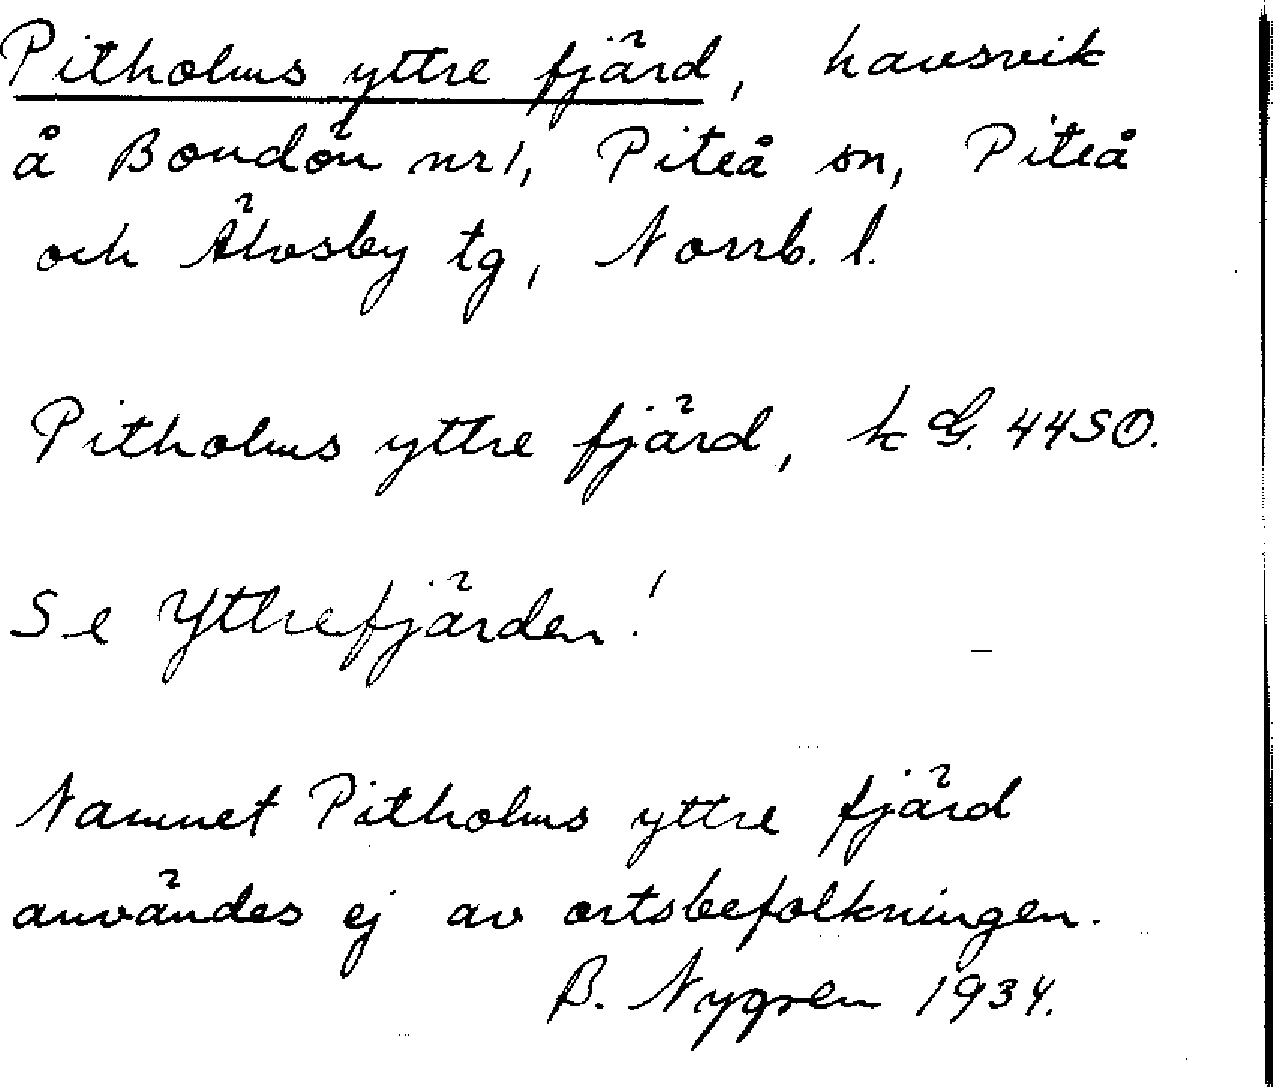 Pitholms yttre fjärd, havsvik
å Bondön nr 1, Piteå sn, Piteå
och Älvsby tg, Norrb. l.
Pitholms yttre fjärd, k G. 4450.
Se Yttrefjärden!
Namnet Pitholms yttre fjärd
användes ej av ortsbefolkningen.
B. Nygren 1934.